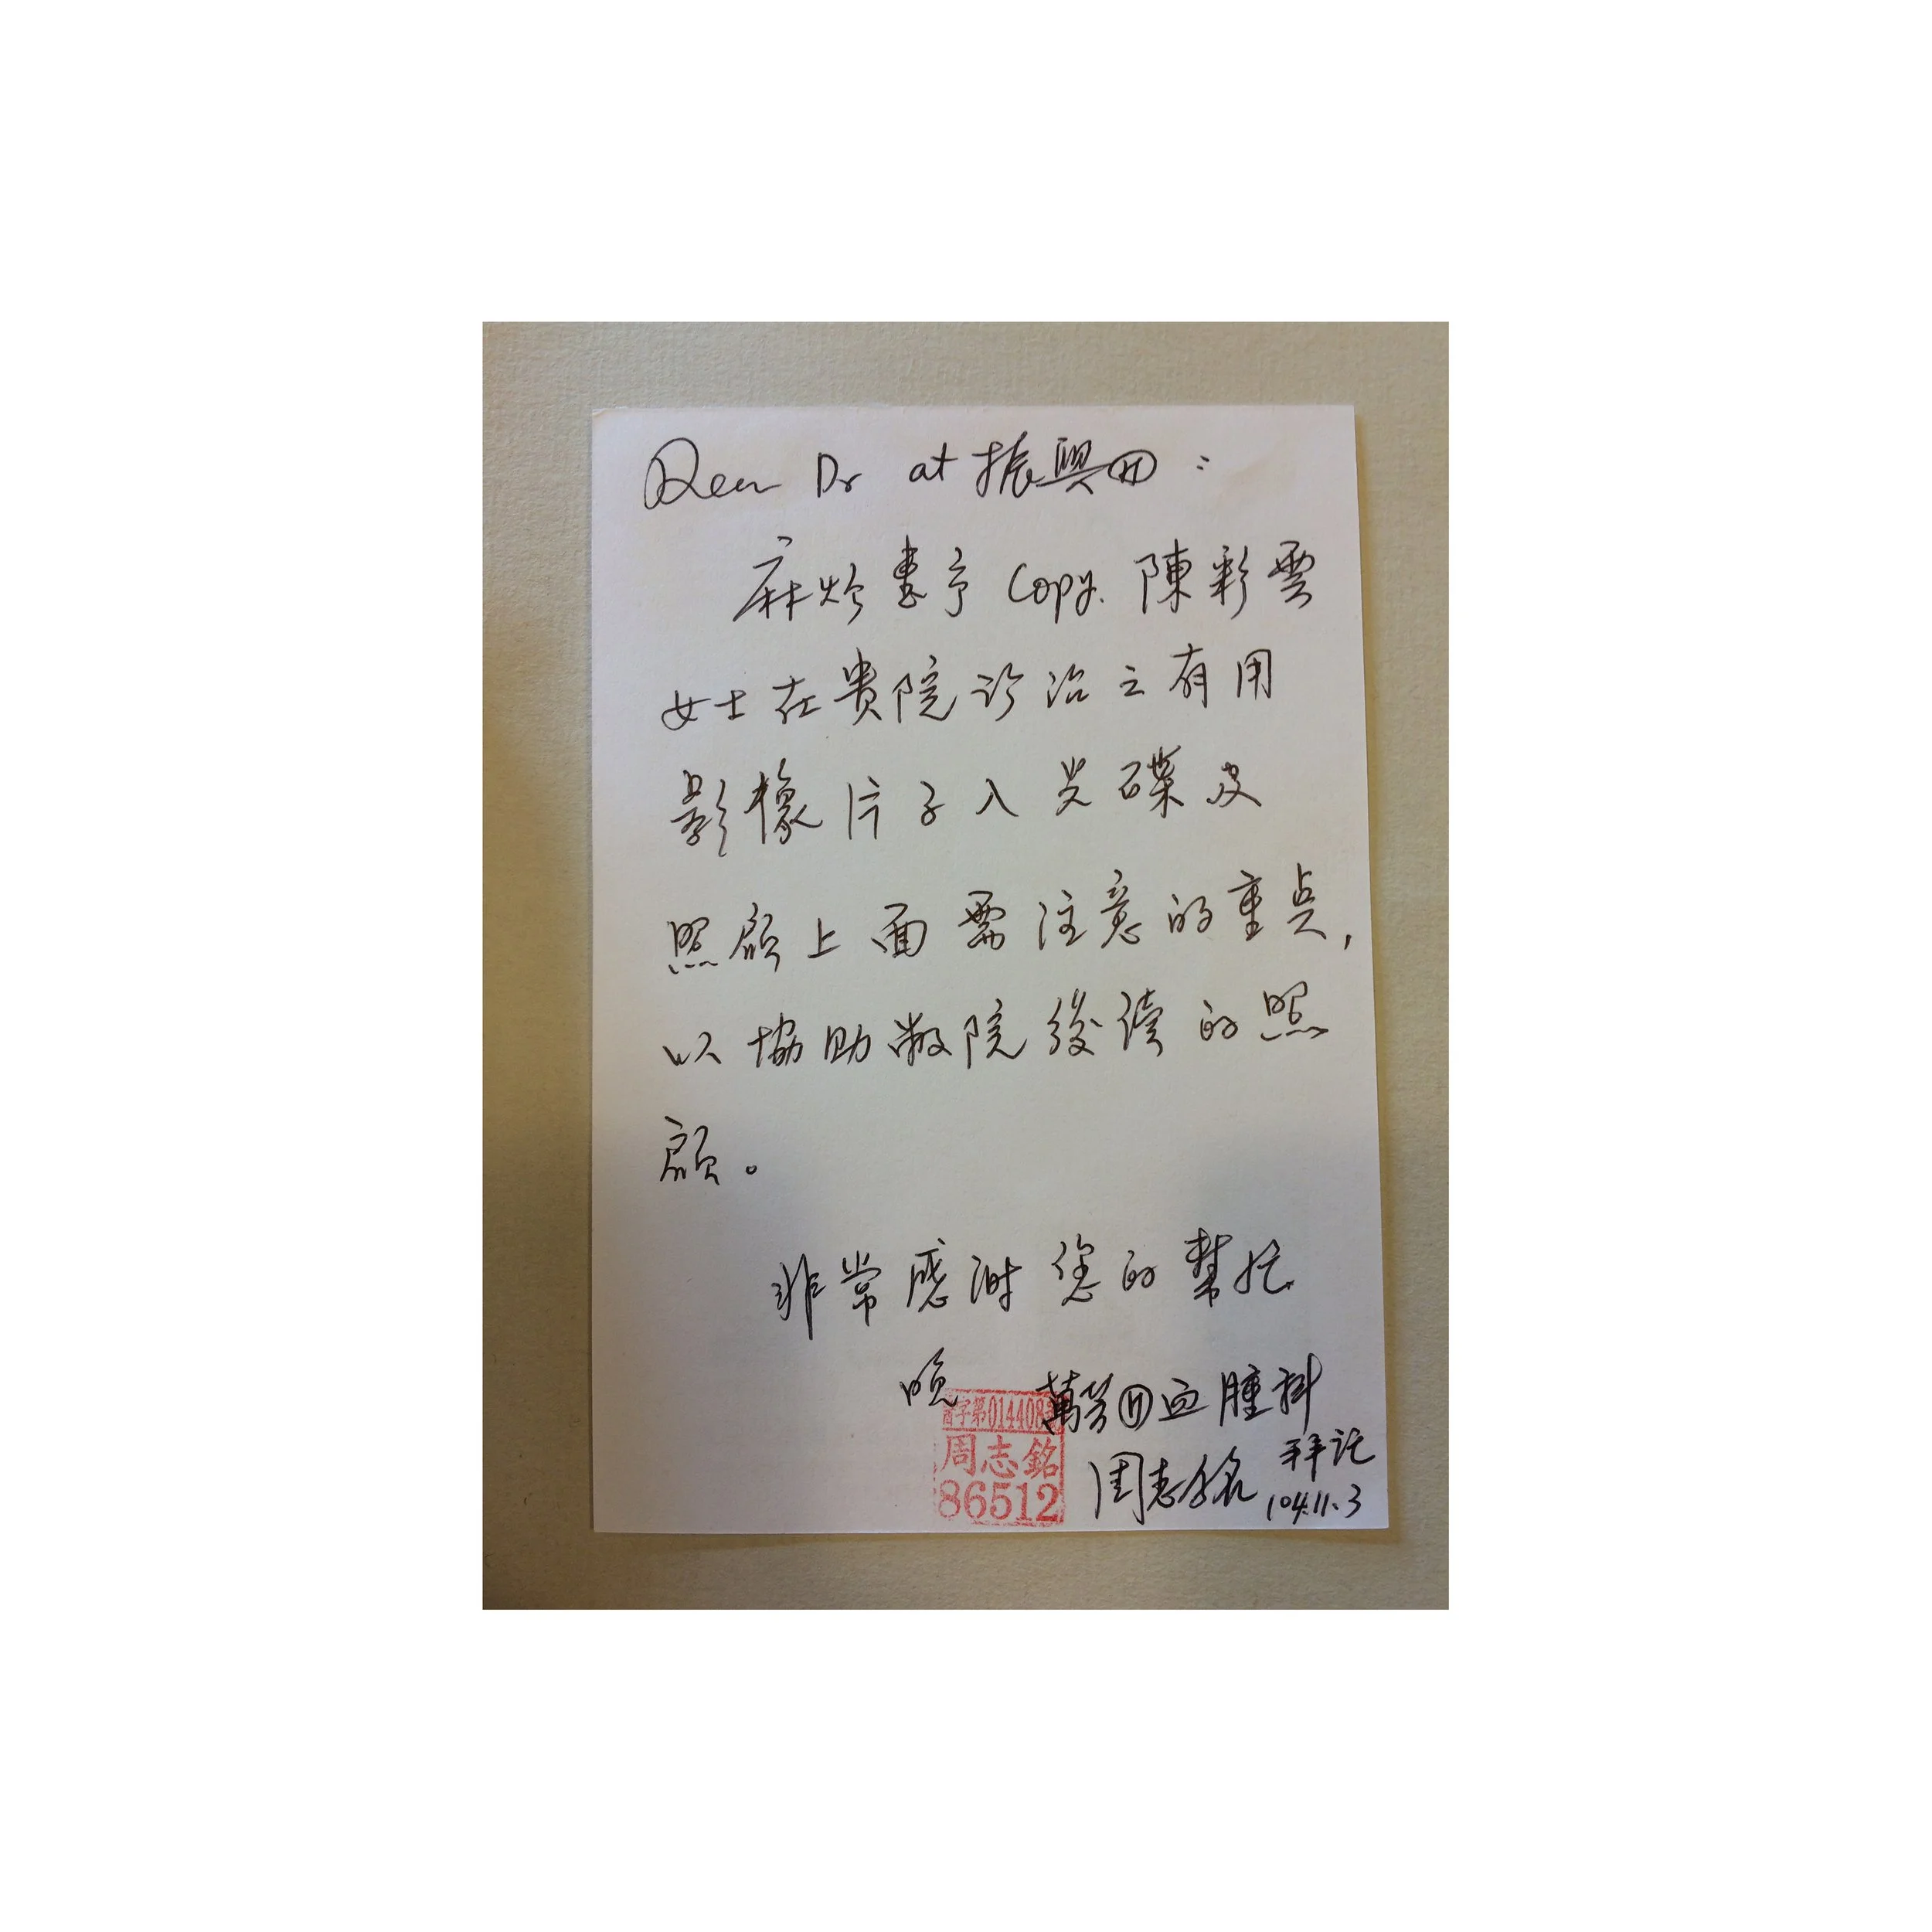 Dear Dr at 振興Ⓗ：
麻煩惠予 Copy. 陳彩雲
女士在貴院診治之有用
影像片子入光碟及
照顧上面需注意的重點，
以協助敝院後續的照
顧。
非常感謝您的幫忙
晚 萬芳Ⓗ血腫科
字第014408號
周志銘 拜託
周志銘
86512
104.11.3